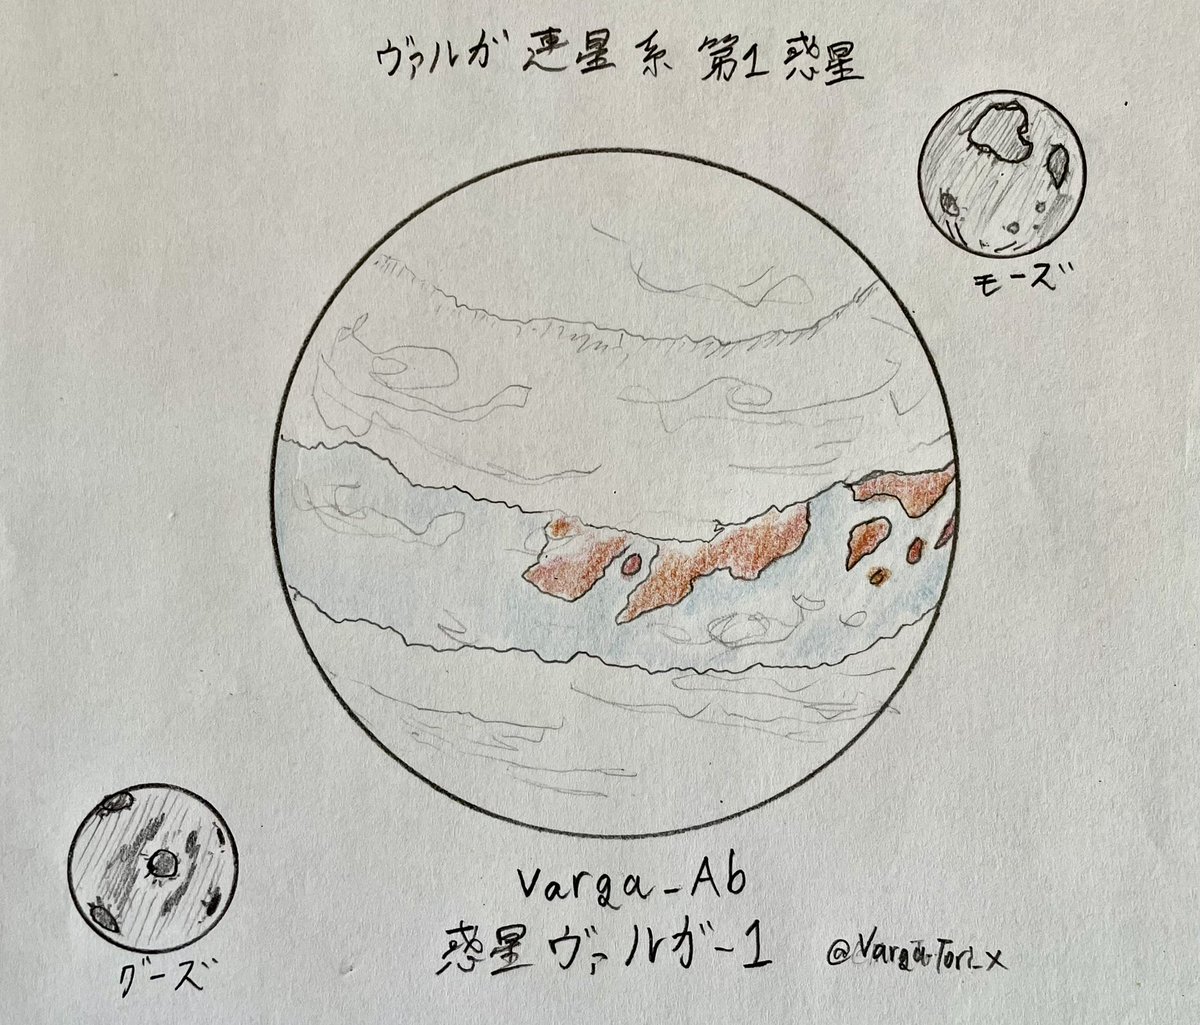 ヴァルガ連星系 第1惑星
モーズ
Varga-Ab
惑星ヴァルガ-1
@Varga-Tori_x
グーズ